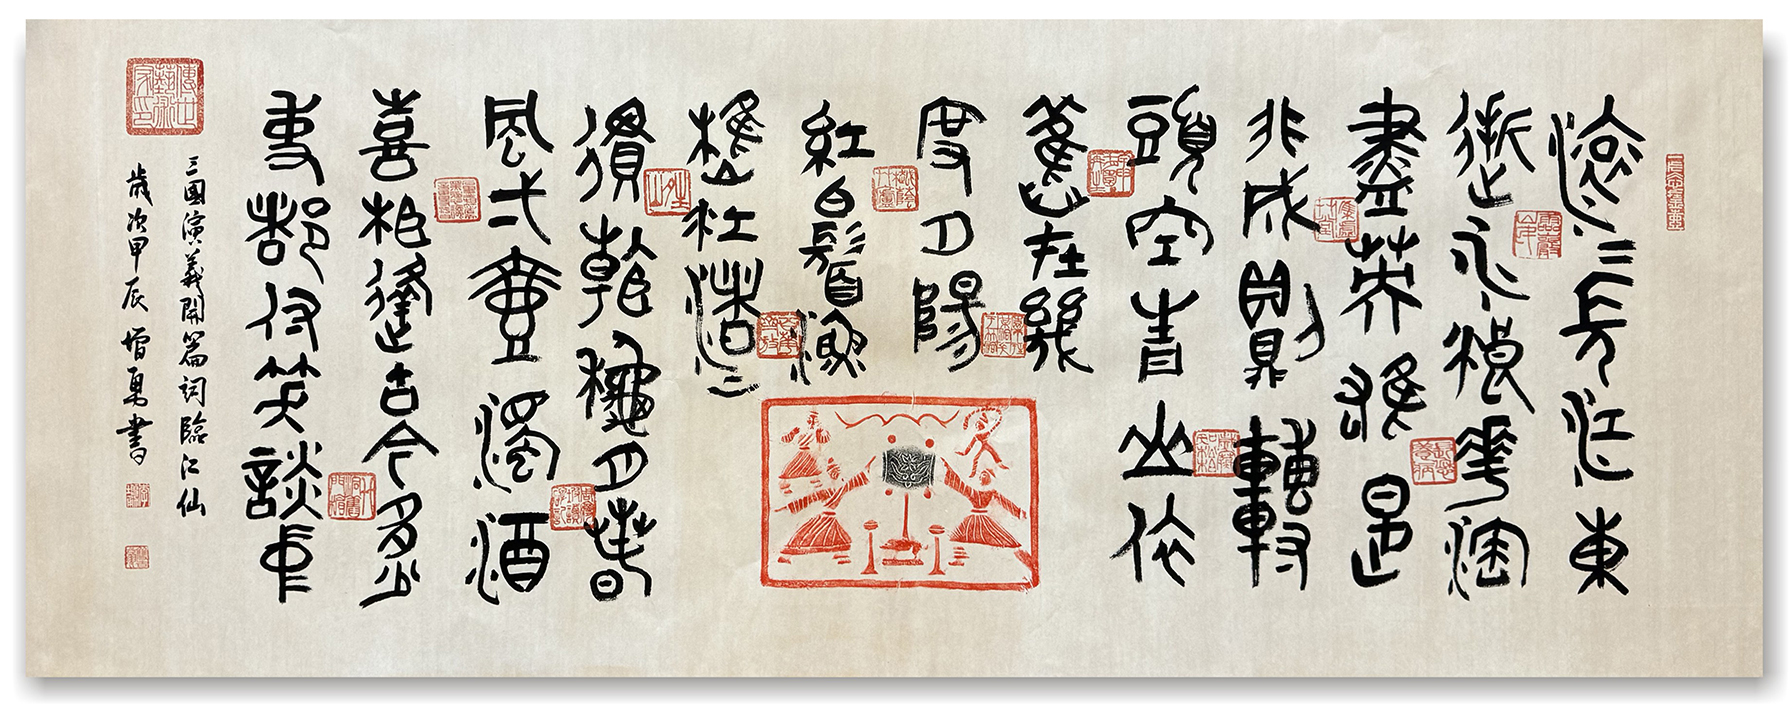 滾〻長江東
逝水浪花淘
盡英雄是
非成敗轉
頭空青山依
舊在幾
度夕陽
紅白髮漁
樵江渚上
慣看秋月春
風弌壺濁酒
喜相逢古今多少
事都付笑談中
三國演義開篇詞臨江仙
歲次甲辰增勇書
傳世藝術家印